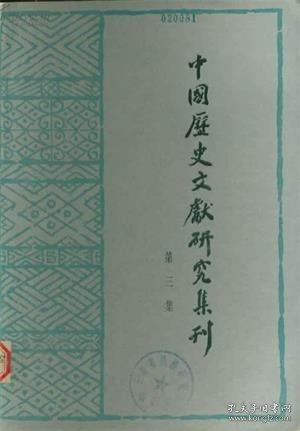 020081
中國歷史文獻研究集刊
第三集
孔夫子旧书网